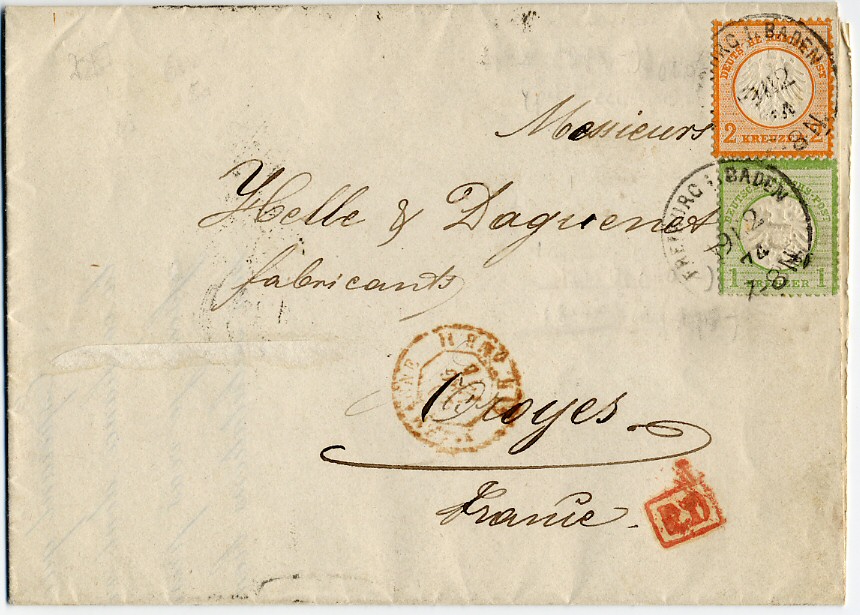 DEUTSCHE REICHS-POST
2 KREUZER 2
FREIBURG I. BADEN
1 KREUZER 1
Messieurs
Helle & Daguenet
fabricants
Troyes.
France.
P.D